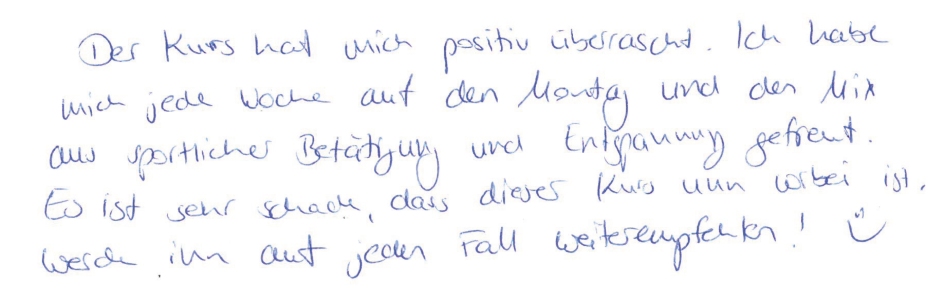 Der Kurs hat mich positiv überrascht. Ich habe
mich jede Woche auf den Montag und den Mix
aus sportlicher Betätigung und Entspannung gefreut.
Es ist sehr schade, dass dieser Kurs nun vorbei ist,
werde ihn auf jeden Fall weiterempfehlen! ü